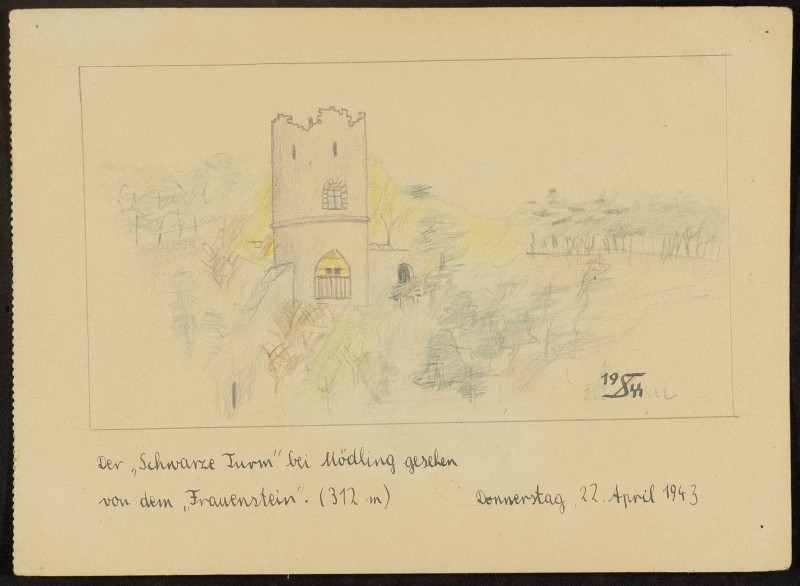 19 44
Der „Schwarze Turm" bei Mödling gesehen
von dem „Frauenstein". (312 m)
Donnerstag, 22. April 1943